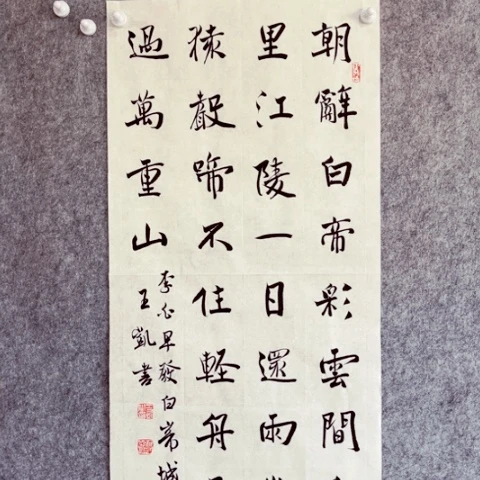 朝辭白帝彩雲間
里江陵一日還兩
猿聲啼不住輕舟
過萬重山
李白早發白帝城
王凱書